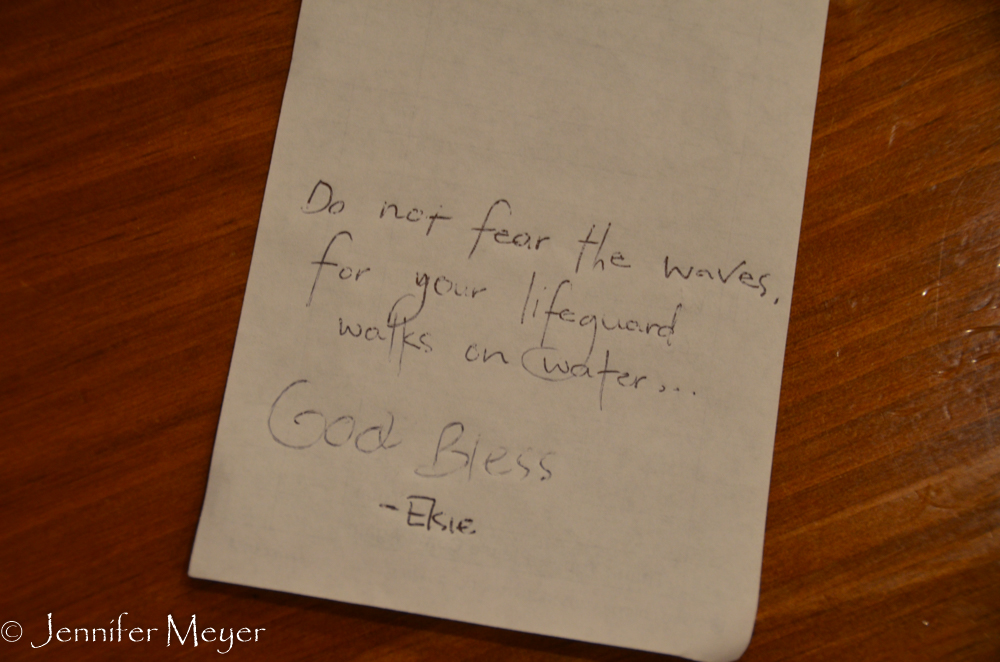 Do not fear the waves,
for your lifeguard
walks on water...
God Bless
- Elsie
© Jennifer Meyer